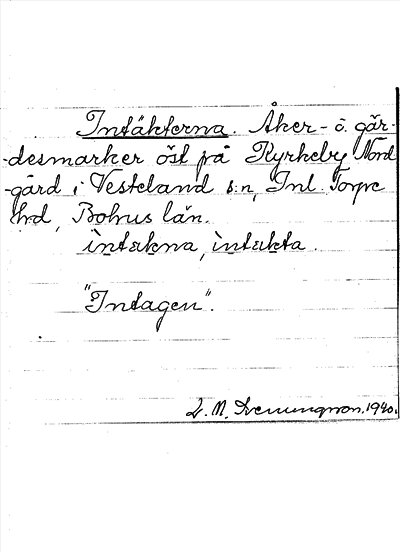 Intäkterna. Åker- o. går-
-desmarker öst på Kyrkeby Nord
-gård i Vesteland s:n, Inl. Torpe
hrd, Bohus län.
ìntækna, ìntækta.
"Intagen".
L. M. Svenungsson, 1940.